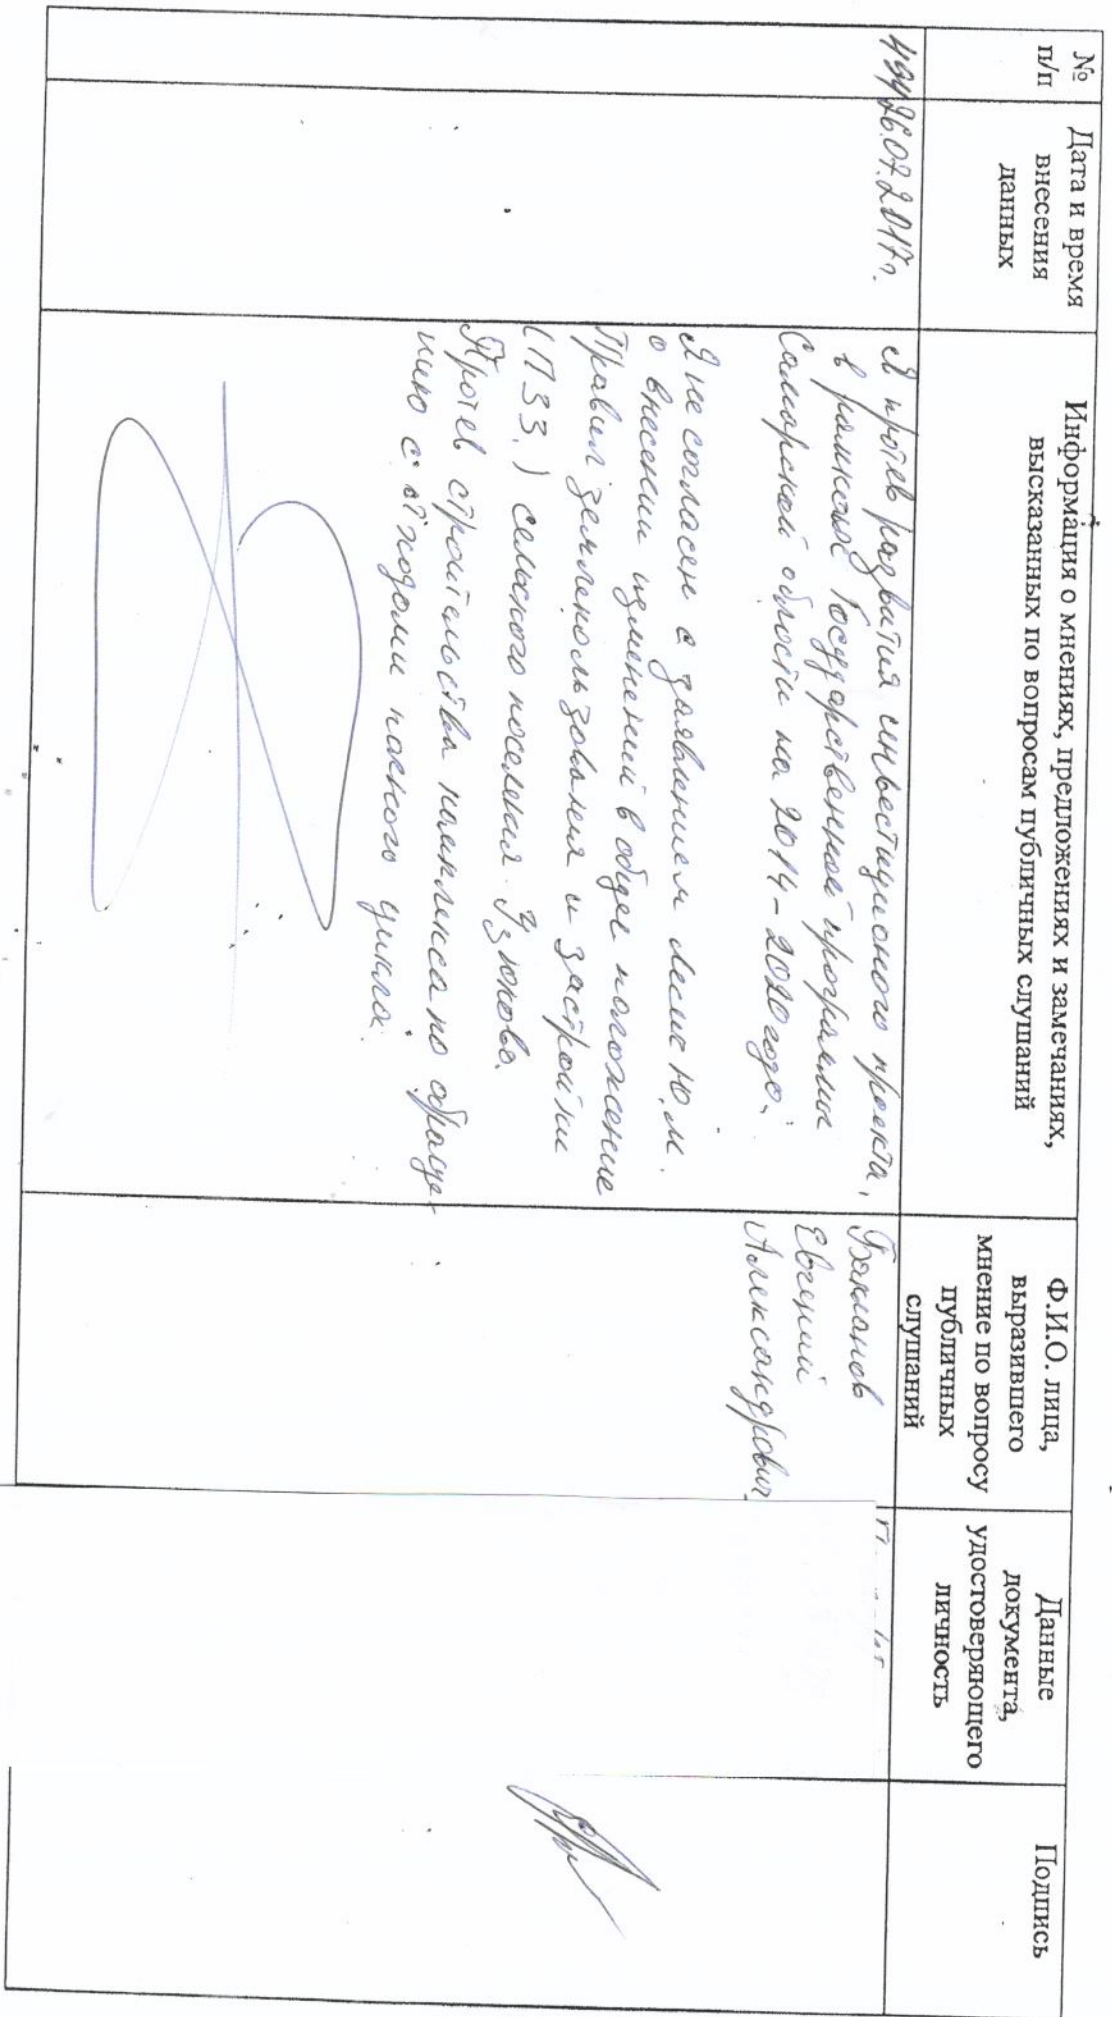 №
п/п
Дата и время
внесения
данных
Информация о мнениях, предложениях и замечаниях,
высказанных по вопросам публичных слушаний
Ф.И.О. лица,
выразившего
мнение по вопросу
публичных
слушаний
Данные
документа,
удостоверяющего
личность
Подпись
26.07.2017г.
Я против развития инвестиционого проекта,
в рамках Государственной программы
Самарской области на 2014-2020 года.
Я не согласен с заявлением Ю.М.
о внесении изменений в общее положение
Правил землепользования и застройки
(ПЗЗ.) сельского поселения Узюково.
Против строительства комплекса по обраще-
нию с отходами полного цикла.
Бакланов
Евгений
Александрович